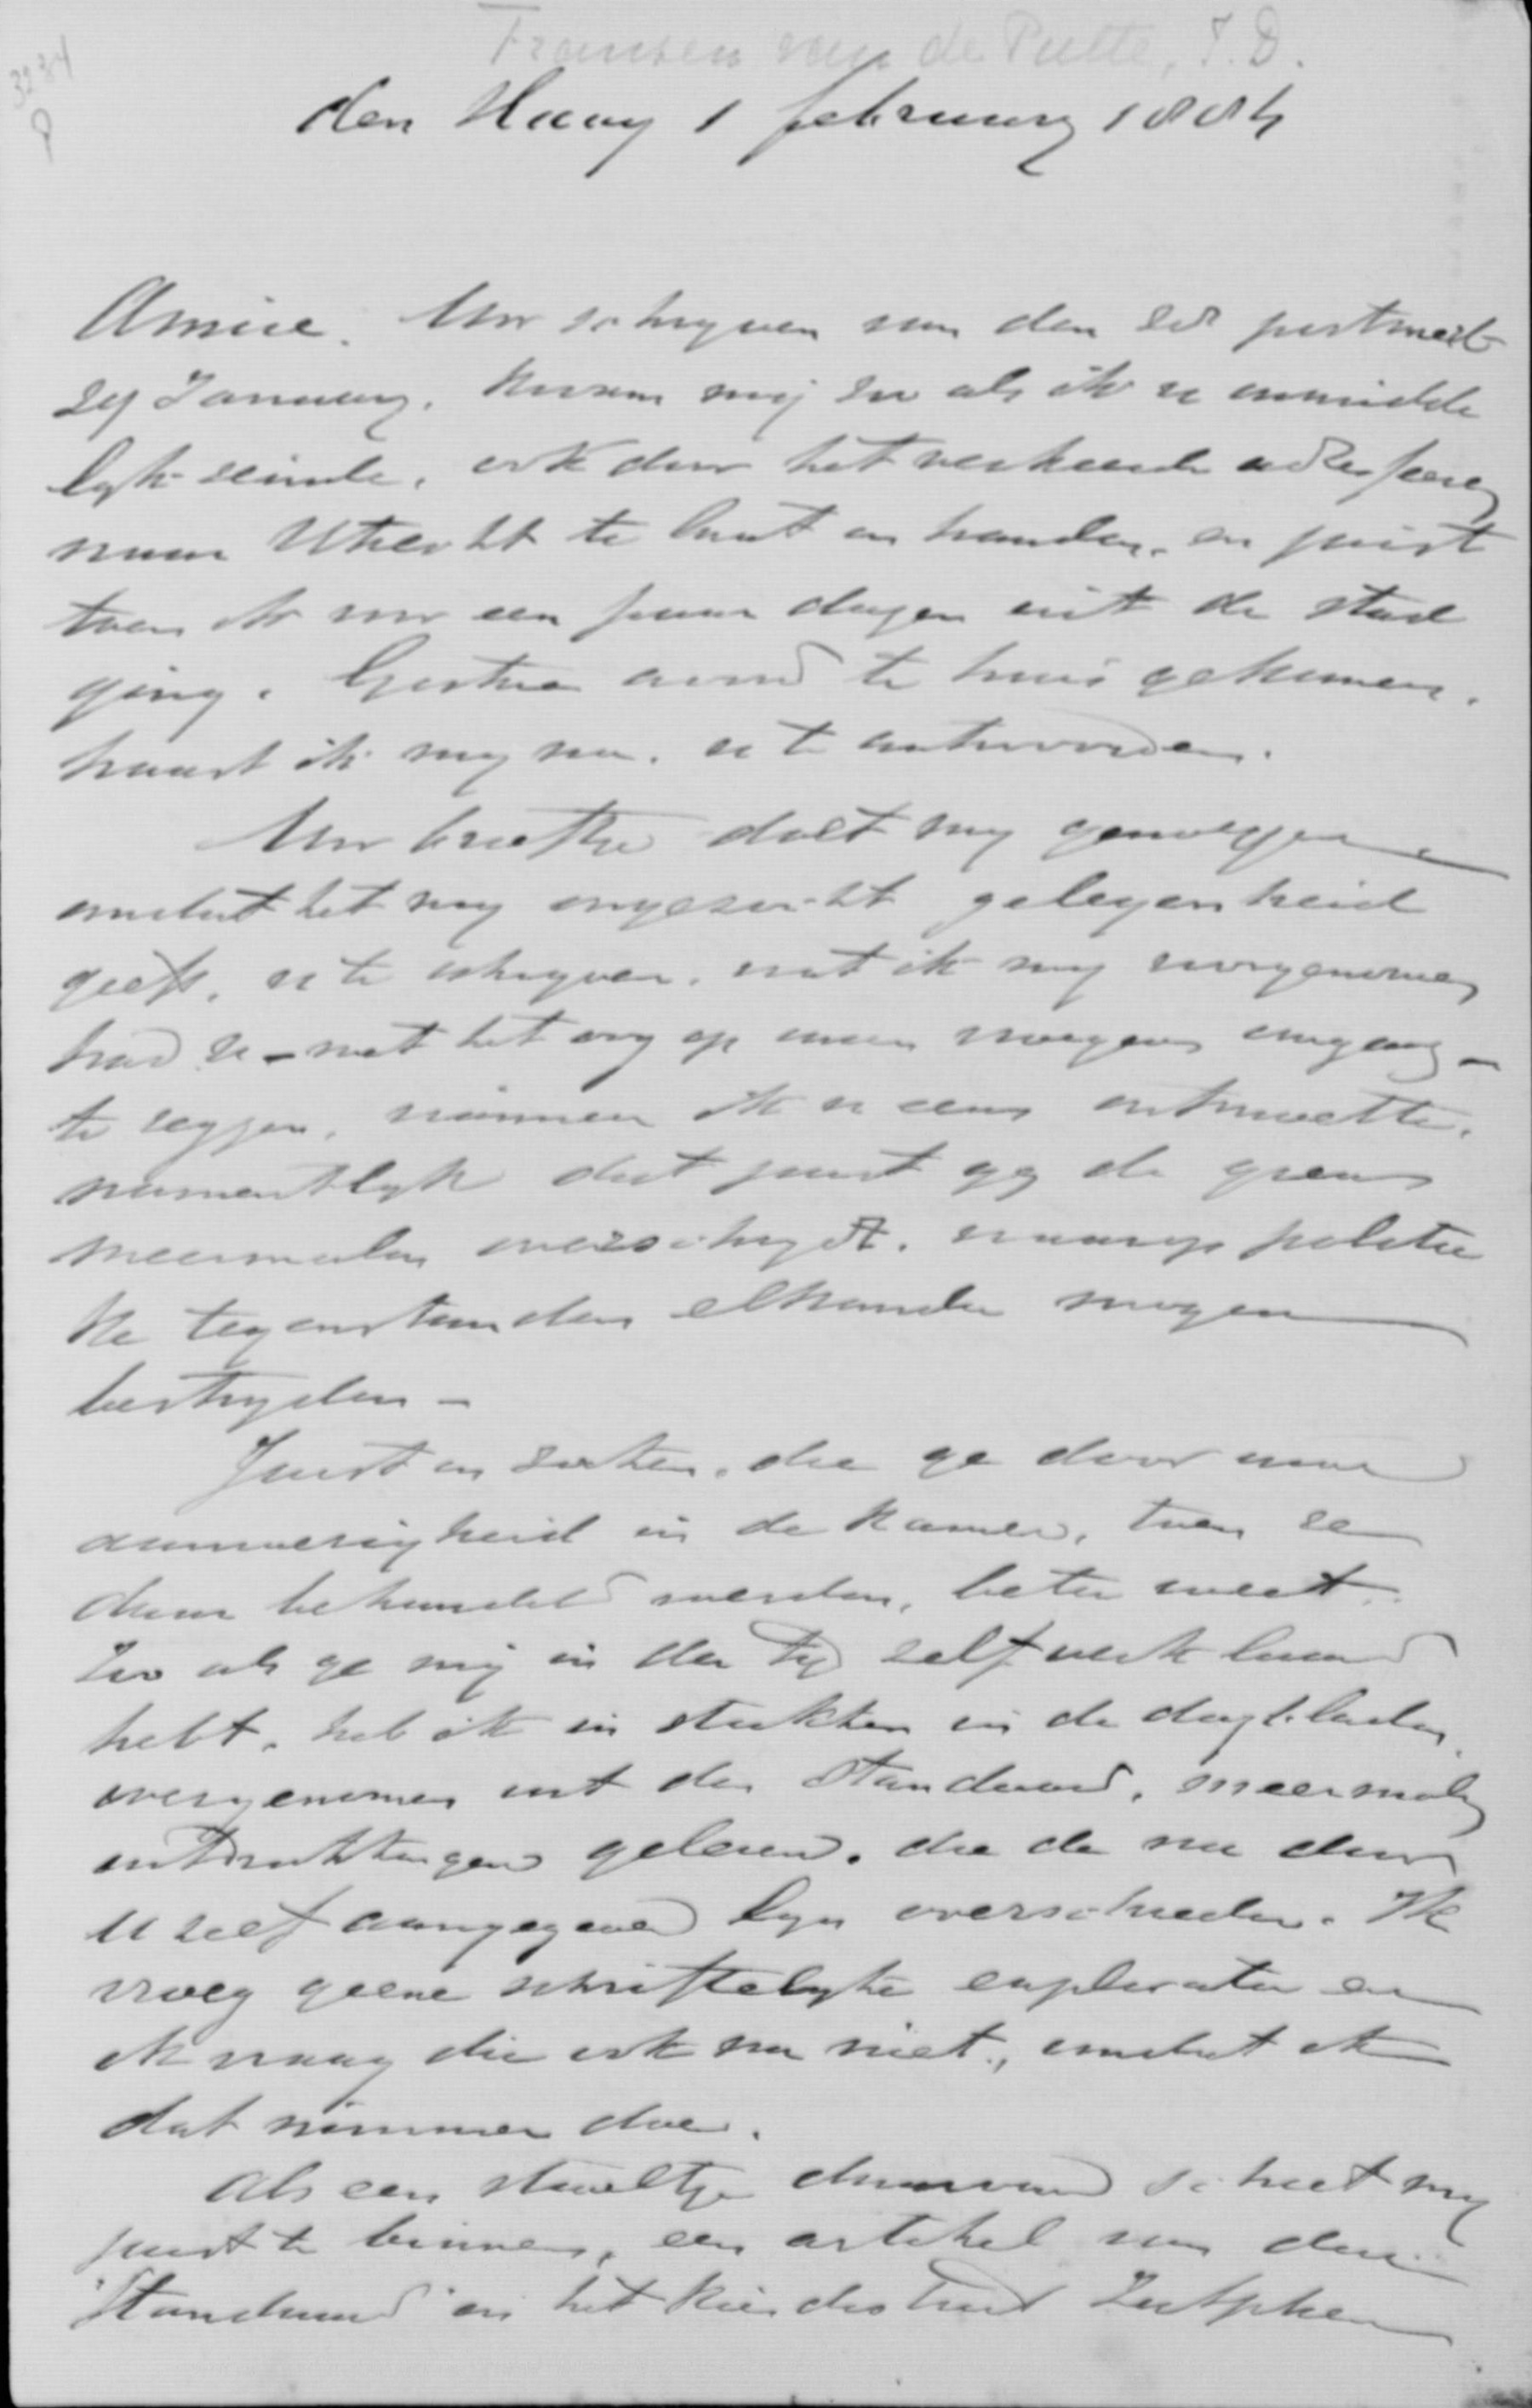 3234
P
Fransen van de Putte, I.D.
den Haag 1 februarij 1884
Amice. Uw schryven van den postmerk
29 January. kwam mij zoo als ik u onmidde
lyk seinde, ook door het verkeerde adresseren
naar Utrecht te laat in handen, en juist
toen ik voor een paar dagen uit de stad
ging. Gisteren avond te huis gekomen.
haast ik my nu. u te antwoorden.
Uw briefke doet my genoegen
omdat het my ongezocht gelegenheid
geeft, u te schryven. wat ik my voorgenomen
had u - met het oog op onzen vroegeren omgang -
te zeggen, wanneer ik u eens ontmoette.
namentlyk dat juist gy de grens
meermalen overschrydt. waarop politie
ke tegenstanders elkander mogen
bestryden -
Juist in zaken, die ge door uwe
aanwezigheid in de Kamer, toen ze
daar behandeld werden, beter weet.
Zoo als ge mij in der tyd zelf verklaard
hebt, heb ik in stukken in de dagbladen
overgenomen uit den Standaard, meermalen
uitdrukkingen gelezen. die de nu door
U zelf aangegeven lyn overschreden. Ik
vroeg geene schriftelyke explicatie en
ik vraag die ook nu niet, omdat ik
dat nimmer doe.
Als een staaltje daarvan schiet my
juist te binnen, een artikel van den
Standaard in het Kiesdistrict Zutphen